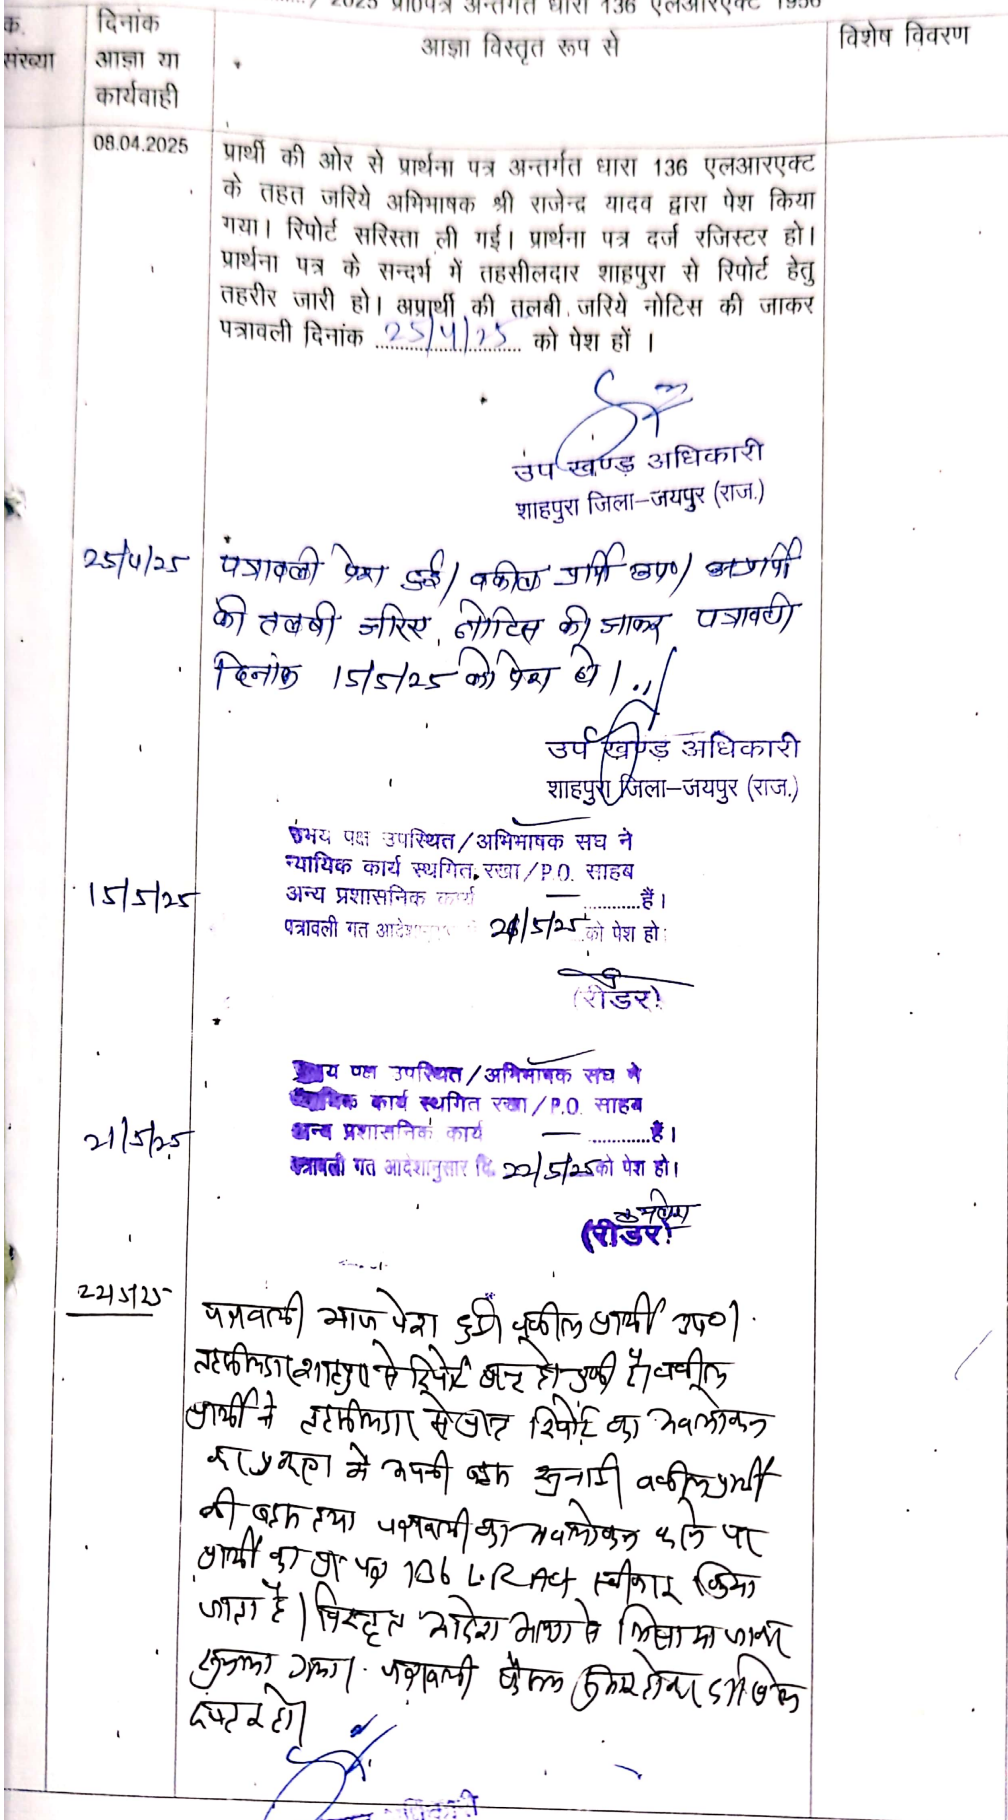 2025 प्रा0पत्र अन्तर्गत धारा 136 एलआरएक्ट 1956
क. संख्या
दिनांक आज्ञा या कार्यवाही
आज्ञा विस्तृत रूप से
विशेष विवरण
08.04.2025
प्रार्थी की ओर से प्रार्थना पत्र अन्तर्गत धारा 136 एलआरएक्ट
के तहत जरिये अभिभाषक श्री राजेन्द्र यादव द्वारा पेश किया
गया। रिपोर्ट सरिस्ता ली गई। प्रार्थना पत्र दर्ज रजिस्टर हो।
प्रार्थना पत्र के सन्दर्भ में तहसीलदार शाहपुरा से रिपोर्ट हेतु
तहरीर जारी हो। अप्रार्थी की तलबी जरिये नोटिस की जाकर
पत्रावली दिनांक 25/4/25 को पेश हों ।
उप खण्ड अधिकारी
शाहपुरा जिला–जयपुर (राज.)
25/4/25
पत्रावली पेश हुई। वकील प्रार्थी उप०। अप्रार्थी
की तलबी जरिए नोटिस की जाकर पत्रावली
दिनांक 15/5/25 को पेश हो।
उप खण्ड अधिकारी
शाहपुरा जिला–जयपुर (राज.)
उभय पक्ष उपस्थित/अभिभाषक संघ ने
न्यायिक कार्य स्थगित रखा/P.O. साहब
15/5/25
अन्य प्रशासनिक कार्य — ............हैं।
पत्रावली गत आदेशानुसार 21/5/25 को पेश हो
(रीडर)
उभय पक्ष उपस्थित/अभिभाषक संघ ने
न्यायिक कार्य स्थगित रखा/P.O. साहब
21/5/25
अन्य प्रशासनिक कार्य — ............है।
पत्रावली गत आदेशानुसार दि. 22/5/25 को पेश हो।
(रीडर)
22/5/25
पत्रावली आज पेश हुई। वकील प्रार्थी उप०।
तहसीलदार शाहपुरा से रिपोर्ट प्राप्त हो चुकी है। वकील
प्रार्थी ने तहसीलदार से प्राप्त रिपोर्ट का अवलोकन
कर प्रकरण में अपनी बहस सुनाई। वकील प्रार्थी
की बहस तथा पत्रावली का अवलोकन करने पर
प्रार्थी का प्रा० पत्र 136 L.R Act स्वीकार किया
जाता है। विस्तृत आदेश अलग से लिखाया जाकर
सुनाया गया। पत्रावली फैसल शुमार होकर दाखिल
दफ्तर हो।